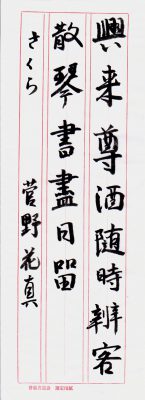 興来尊酒随時辨客
散琴書盡日留
さくら 菅野花真